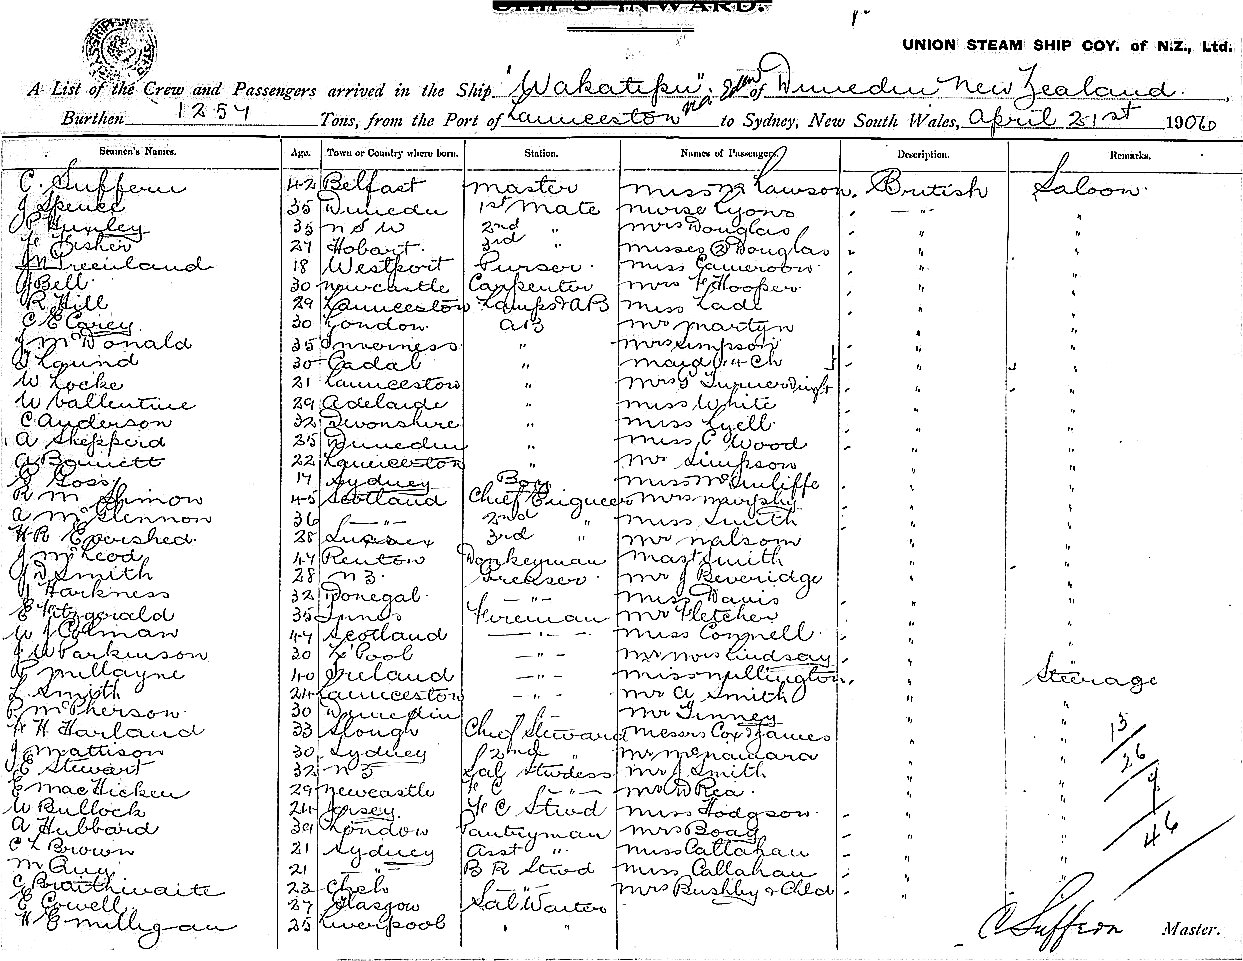 SHIPS INWARD.
UNION STEAM SHIP COY. of N.Z., Ltd.
A List of the Crew and Passengers arrived in the Ship "Wakatipu". of Dunedin New Zealand.
Burthen 1254 Tons, from the Port of Launceston to Sydney, New South Wales, April 21st 1906
Seamen's Names. Age. Town or Country where born. Station. Names of Passengers. Description. Remarks.
C. Suffern 42 Belfast Master Miss Lawson. British Saloon.
J Spence 35 Dunedin 1st Mate Nurse Lyons " "
Huxley 35 N S W 2nd " Mrs Douglas " "
Fisher 27 Hobart. 3rd " Misses (2) Douglas " "
18 Westport Purser. Miss Cameron " "
J Bell 30 Newcastle Carpenter Mrs F Hooper " "
R Hill 29 Launceston Lamps & AB Miss Lade " "
C E Carey 30 London AB Mr Martyn " "
J McDonald 35 Inverness " Mrs Simpson " "
30 " Maid & 4 Ch " "
W Locke 21 Launceston " Mrs Turnerwright " "
W Vallentine 29 Adelaide " Miss White " "
C Anderson 32 Devonshire " Miss Lyell " "
A Shepperd 25 Dunedin " Miss C Wood " "
A Bennett 22 Launceston " Mr Simpson " "
Goss 17 Sydney Boy Miss McAuliffe " "
R M 45 Scotland Chief Engineer Mrs Murphy " "
A McGlennon 36 — " — 2nd " Miss Smith " "
H R Evershed 28 Sussex 3rd " Mr " "
J McLeod 47 Renton Donkeyman Mast Smith " "
J D Smith 28 N Z. Greaser. Mr J Beveridge " "
J Harkness 32 Donegal. — " — Miss Davis " "
E Fitzgerald 35 Fireman Mr Fletcher " "
W J Colman 47 Scotland — " — Miss Connell " "
J W Parkinson 30 L'Pool — " — Mr & Mrs Lindsay " "
P Millayne 40 Ireland — " — Miss Millington. " Steerage
L Smith 24 Launceston — " — Mr A Smith " "
P McPherson. 30 Dunedin Mr Tinney " "
H Harland 33 Slough Chief Steward Messrs Cox & James " "
J Mattison 30 Sydney 2nd " Mr McNamara " "
E Stewart 32 N Z Sal Studess Mr J Smith " "
E MacHicken 29 Newcastle F C — " — Mr D Rea. " "
W Bullock 24 Jersey. F C Stwd Miss Hodgson. " "
A Hubbard 39 London Pantryman Mrs Boag " "
C L Brown 21 Sydney Asst " Miss Callahan " "
M 21 — " — B R Stwd Miss Callahan " "
C Braithwaite 23 — " — Mrs Bushby & Child " "
E Cowell 27 Glasgow Sal Waiter
H E Milligan 25 Liverpool " "
15
26
9
46
C Suffern Master.